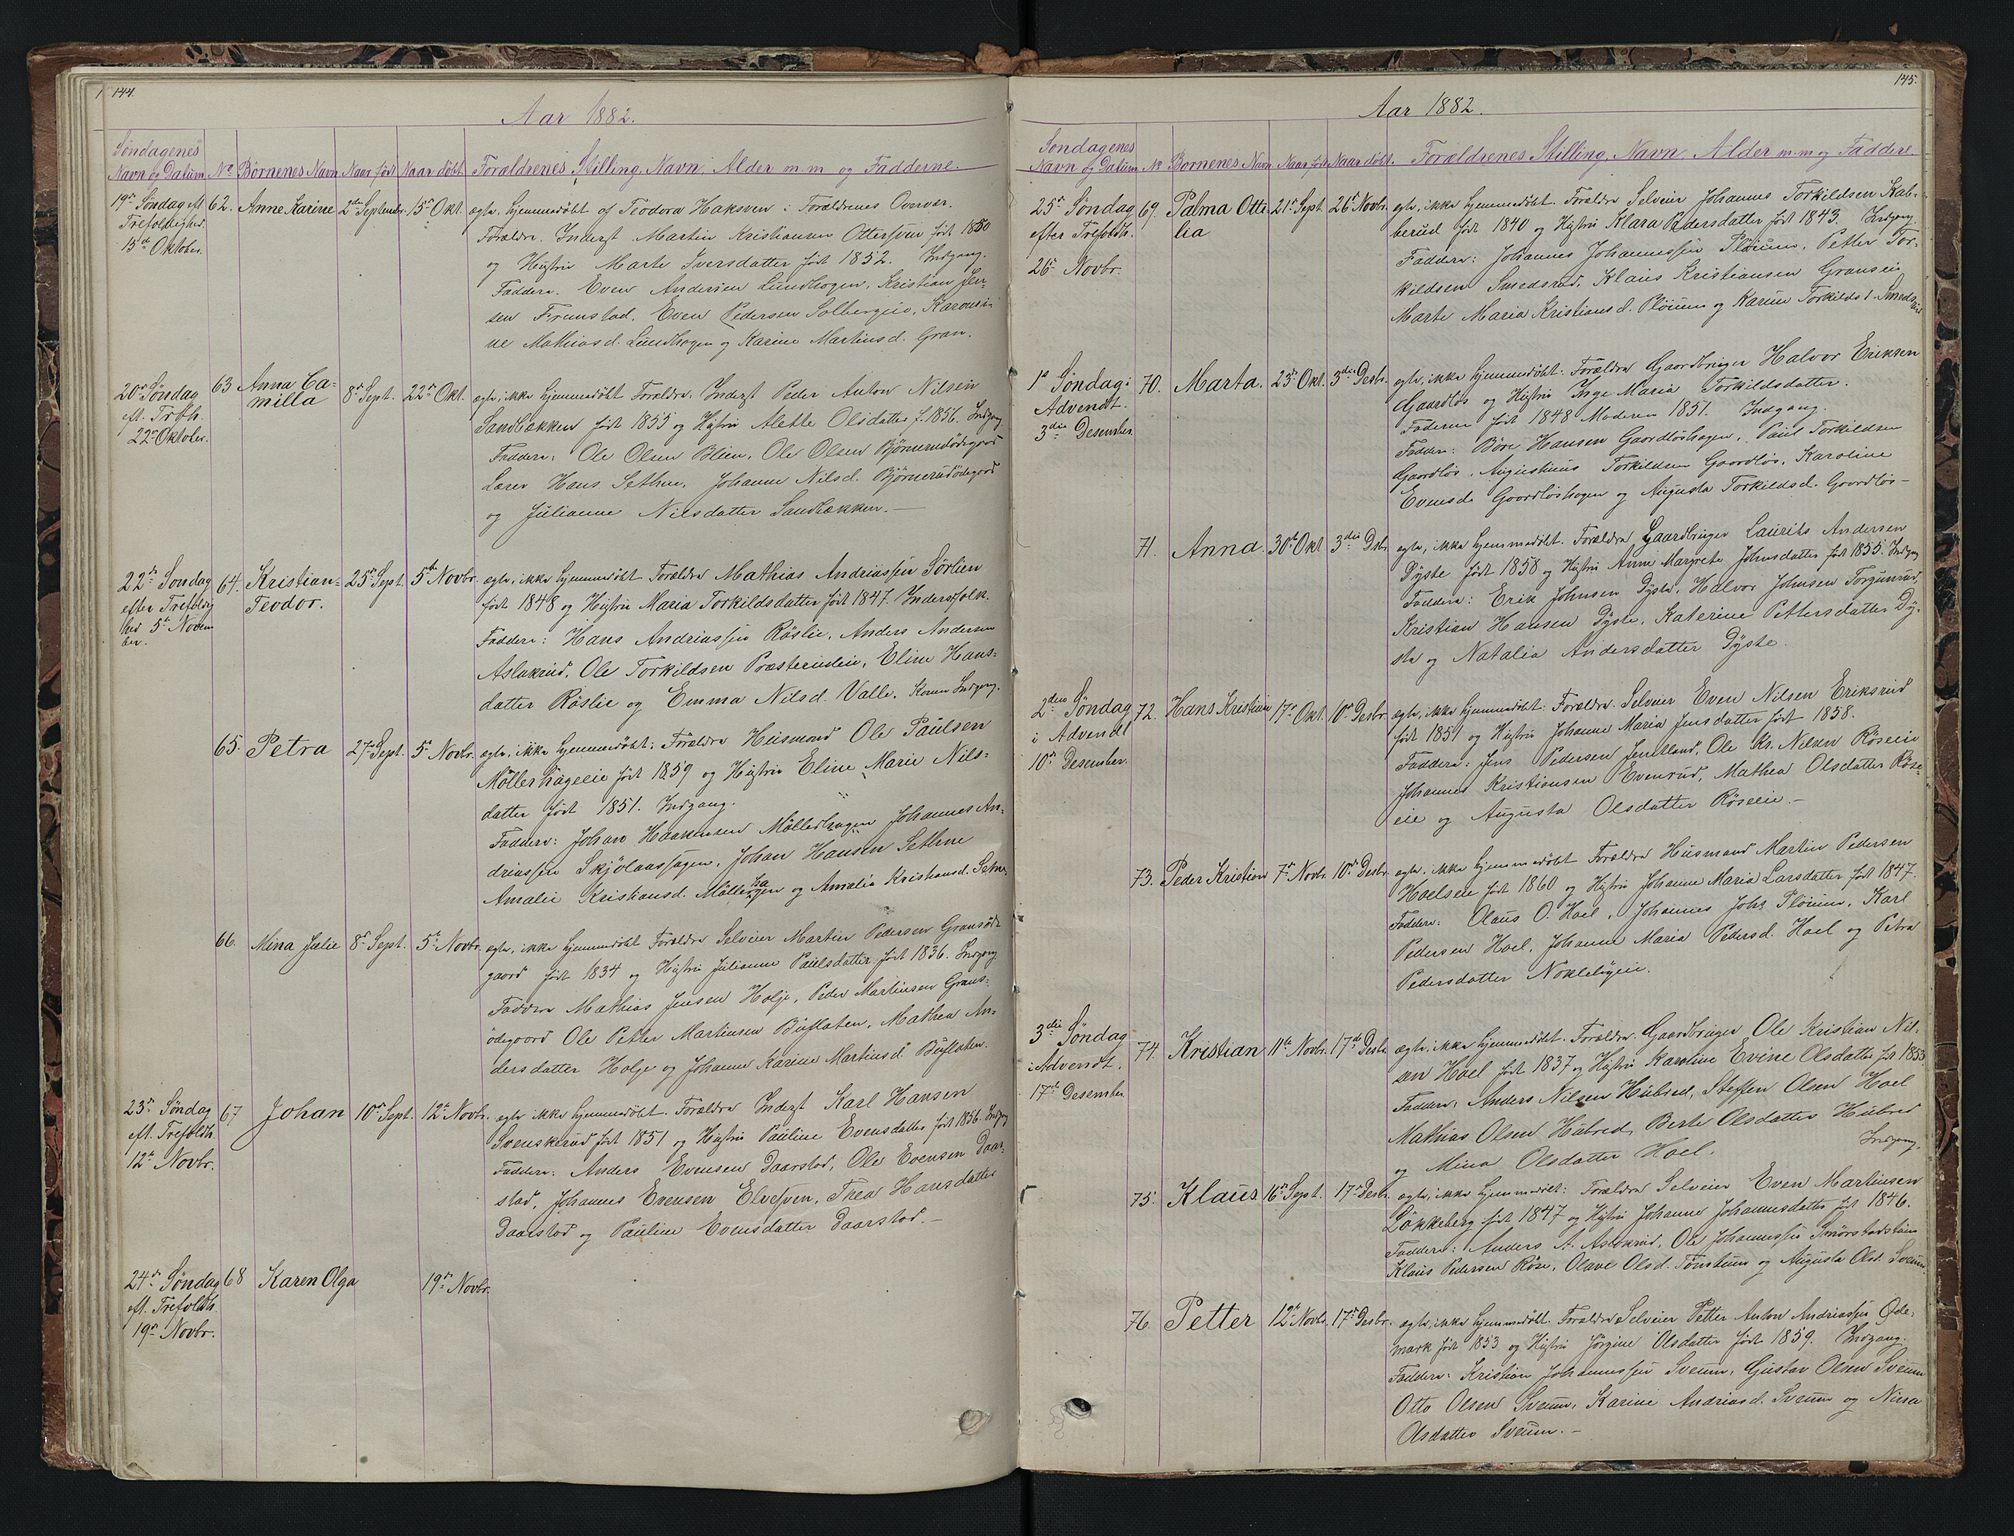 144.
Aar 1882.
Søndagenes
Navn og Datum No Børnenes Navn Naar født Naar døbt. Forældrenes Stilling, Navn, Alder m. m og Fadderne.
19de Søndag eft. 62. Anne Karine 2den Septembr. 15de Okt. egte, hjemmedøbt af Teodora Haksven i Forældrenes Overvær.
Trefoldighed. Forældre. Inderst Martin Kristiansen Ottersven født 1850
15de Oktober. og Hustru Marte Iversdatter født 1852. Indgang.
Faddere. Even Andersen Lundhagen, Kristian Jen-
sen Frenstad, Even Pedersen Solbergeie, Karensti-
ne Mathiasd. Lundhagen og Karine Martinsd. Gran.
20de Søndag 63 Anna Ca- 8de Sept. 22de Okt. egte, ikke hjemmedøbt Forældre, Inderst Peder Anton Nilsen
eft. Trefh. milla Sandbækken født 1855 og Hustru Alette Olsdatter f. 1856. Indgang
22de Oktober. Faddere: Ole Olsen Blien, Ole Olsen Bjørnerudødegaard
Lærer Hans Sethne, Johanne Nilsd. Bjørnerudødegaard
og Julianne Nilsdatter Sandbækken. —
22de Søndag 64. Kristian- 25de Sept. 5te Novbr. egte, ikke hjemmedøbt Forældre Mathias Andriassen Sørlien
efter Trefoldig Teodor. født 1848 og Hustru Maria Torkildsdatter født 1847. Inderstfolk.
hed 5te Novem Faddere: Hans Andriassen Røslie, Anders Andersen
ber. Aslakrud, Ole Torkildsen Præsterudeie, Eline Hans-
datter Røslie og Emma Nilsd. Valle. Konen Indgang.
65. Petra 27de Sept. 5te Novbr. egte, ikke hjemmedøbt: Forældre Husmand Ole Paulsen
Møllerhageeie født 1859 og Hustru Eline Marie Nils-
datter født 1851. Indgang.
Faddere: Johan Haakensen Møllerhagen Johannes An-
driassen Skjølaassagen, Johan Hansen Sethne
Amalie Kristiansd. Møllerhagen og Amalia Kristiansd. Setne
66. Mina Julie 8de Sept. 5te Novbr. egte, ikke hjemmedøbt Forældre Selveier Martin Pedersen Gransøde
gaard født 1834 og Hustru Julianne Paulsdatter født 1836. Indgang
Faddere Mathias Jensen Holje, Peder Martinsen Grans-
ødegaard Ole Petter Martinsen Buflaten, Mathea An-
dersdatter Holje og Johanne Karine Martinsd Buflaten.
23de Søndag 67 Johan 10de Sept. 12te Novbr. egte ikke hjemmedøbt. Forældre Inderst Karl Hansen
eft. Trefoldh. Svenskerud født 1851 og Hustru Pauline Evensdatter født 1856 Indgang
12te Novbr. Faddere: Anders Evensen Daarstad, Ole Evensen Daar-
stad, Johannes Evensen Elvesven, Thea Hansdatter
Daarstad og Pauline Evensdatter Daarstad. —
24de Søndag 68 Karen Olga 19de Novbr.
eft. Trefoldh.
19de Novbr.
145.
Aar 1882.
Søndagenes
Navn og Datum No Børnenes Navn Naar født Naar døbt. Forældrenes Stilling, Navn, Alder m. m og Faddere
25de Søndag 69. Palma Otte 21de Sept. 26de Novbr. egte, ikke hjemmedøbt. Forældre Selveier Johannes Torkildsen Kab-
efter Trefoldh. lia berud født 1840 og Hustru Klara Pedersdatter født 1843. Indgang
26de Novbr. Faddere: Johannes Johannessen Pløium, Petter Tor-
kildsen Smedsrud, Klaus Kristiansen Granseie
Marte Maria Kristiansd. Pløium og Karine Torkildsd. Smedsrud
1ste Søndag i 70. Marta. 25de Okt. 3die Desbr. egte, ikke hjemmedøbt. Forældre Gaardbruger Halvor Eriksen
Advendt. Gaardløs og Hustru Inge Maria Torkildsdatter.
3die Desember Faderen født 1848 Moderen 1851. Indgang.
Faddere: Børe Hansen Gaardløshagen, Paul Torkildsen
Gaardløs, Augustinus Torkildsen Gaardløs, Karoline
Evensd. Gaardløshagen og Augusta Torkildsd. Gaardløs —
71. Anna. 30te Okt 3die Dsbr. egte, ikke hjemmedøbt. Forældre Gaardbruger Laurits Andersen
Dyste født 1858 og Hustru Anne Margrete Johnsdatter født 1855. Indgang
Faddere: Erik Johnsen Dyste, Halvor Johnsen Torgunrud,
Kristian Hansen Dyste, Katerine Pettersdatter Dy-
ste og Natalia Andersdatter Dyste.
2den Søndag 72. Hans Kristian 17de Okt. 10de Desbr. egte, ikke hjemmedøbt: Forældre, Selveier Even Nilsen Eriksrud
i Advendt født 1851 og Hustru Johanne Maria Jensdatter født 1858.
10de Desember. Faddere: Jens Pedersen Jensland, Ole Kr. Nilsen Røseeie
Johannes Kristiansen Evenrud, Mathea Olsdatter Røse-
eie og Augusta Olsdatter Røseeie. —
73. Peder Kristian 7de Novbr. 10de Desbr. egte. ikke hjemmedøbt Forældre Husmand Martin Pedersen
Hoelseie født 1860 og Hustru Johanne Maria Larsdatter født 1847.
Faddere: Olaus O. Hoel, Johannes Johs Pløium, Karl
Pedersen Hoel, Johanne Maria Pedersd. Hoel og Petra
Pedersdatter Nøklebyeie.
3die Søndag 74. Kristian 11te Novbr. 17de Desbr. egte, ikke hjemmedøbt. Forældre Gaardbruger Ole Kristian Nil-
i Advendt. sen Hoel født 1837 og Hustru Karoline Evine Olsdatter født 1853.
17de Desember. Faddere: Anders Nilsen Hubred, Steffen Olsen Hoel
Mathias Olsen Hubred, Berte Olsdatter Hubred
og Mina Olsdatter Hoel. Indgang.
75. Klaus 16de Sept. 17de Desbr. egte, ikke hjemmedøbt: Forældre Selveier Even Martinsen
Løkkeberg født 1847 og Hustru Johanne Johannesdatter født 1846.
Faddere: Anders A. Aslakrud, Ole Johannessen Smørstadstuen
Klaus Pedersen Røse, Olave Olsd. Tønstuen og Augusta Olsd. Sveum.
76. Petter 12te Novbr. 17de Desbr. egte, ikke hjemmedøbt. Forældre Selveier Petter Anton Andriassen Øde-
mark født 1853 og Hustru Jørgine Olsdatter født 1859. Indgang.
Faddere: Kristian Johannessen Sveum, Gustav Olsen Sveum
Otto Olsen Sveum, Karine Andriasd. Sveum og Nina
Olsdatter Sveum. —